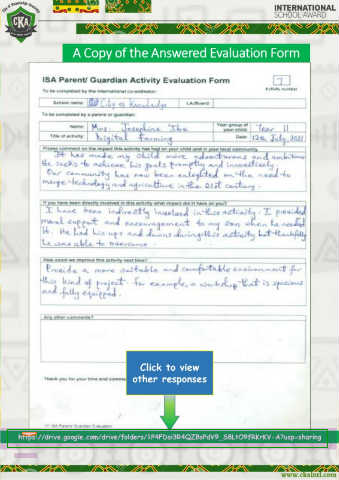 INTERNATIONAL
SCHOOL AWARD
CKA
A Copy of the Answered Evaluation Form
ISA Parent/ Guardian Activity Evaluation Form
7
To be completed by the international co-ordinator:
School name City of Knowledge LA/Board
To be completed by a parent or guardian:
Name Mrs. Josephine
Year group of your child Year 11
Title of activity Digital Farming
Date 12th July, 2021
Please comment on the impact this activity has had on your child and in your local community.
It has made my child more adventurous and ambitious
He seeks to achieve his goals promptly and innovatively.
Our community has now been enlighted on the need to
merge technology and agriculture in the 21st century.
If you have been directly involved in this activity what impact did it have on you?
I have been indirectly involved in this activity. I provided
moral support and encouragement to my son when he needed
it. He had his ups and downs during this activity but thankfully
he was able to overcome.
How could we improve this activity next time?
Provide a more suitable and comfortable environment for
this kind of project. For example, a workshop that is spacious
and fully equipped.
Any other comments?
Click to view
other responses
Thank you for your time and
www.ckaintl.com